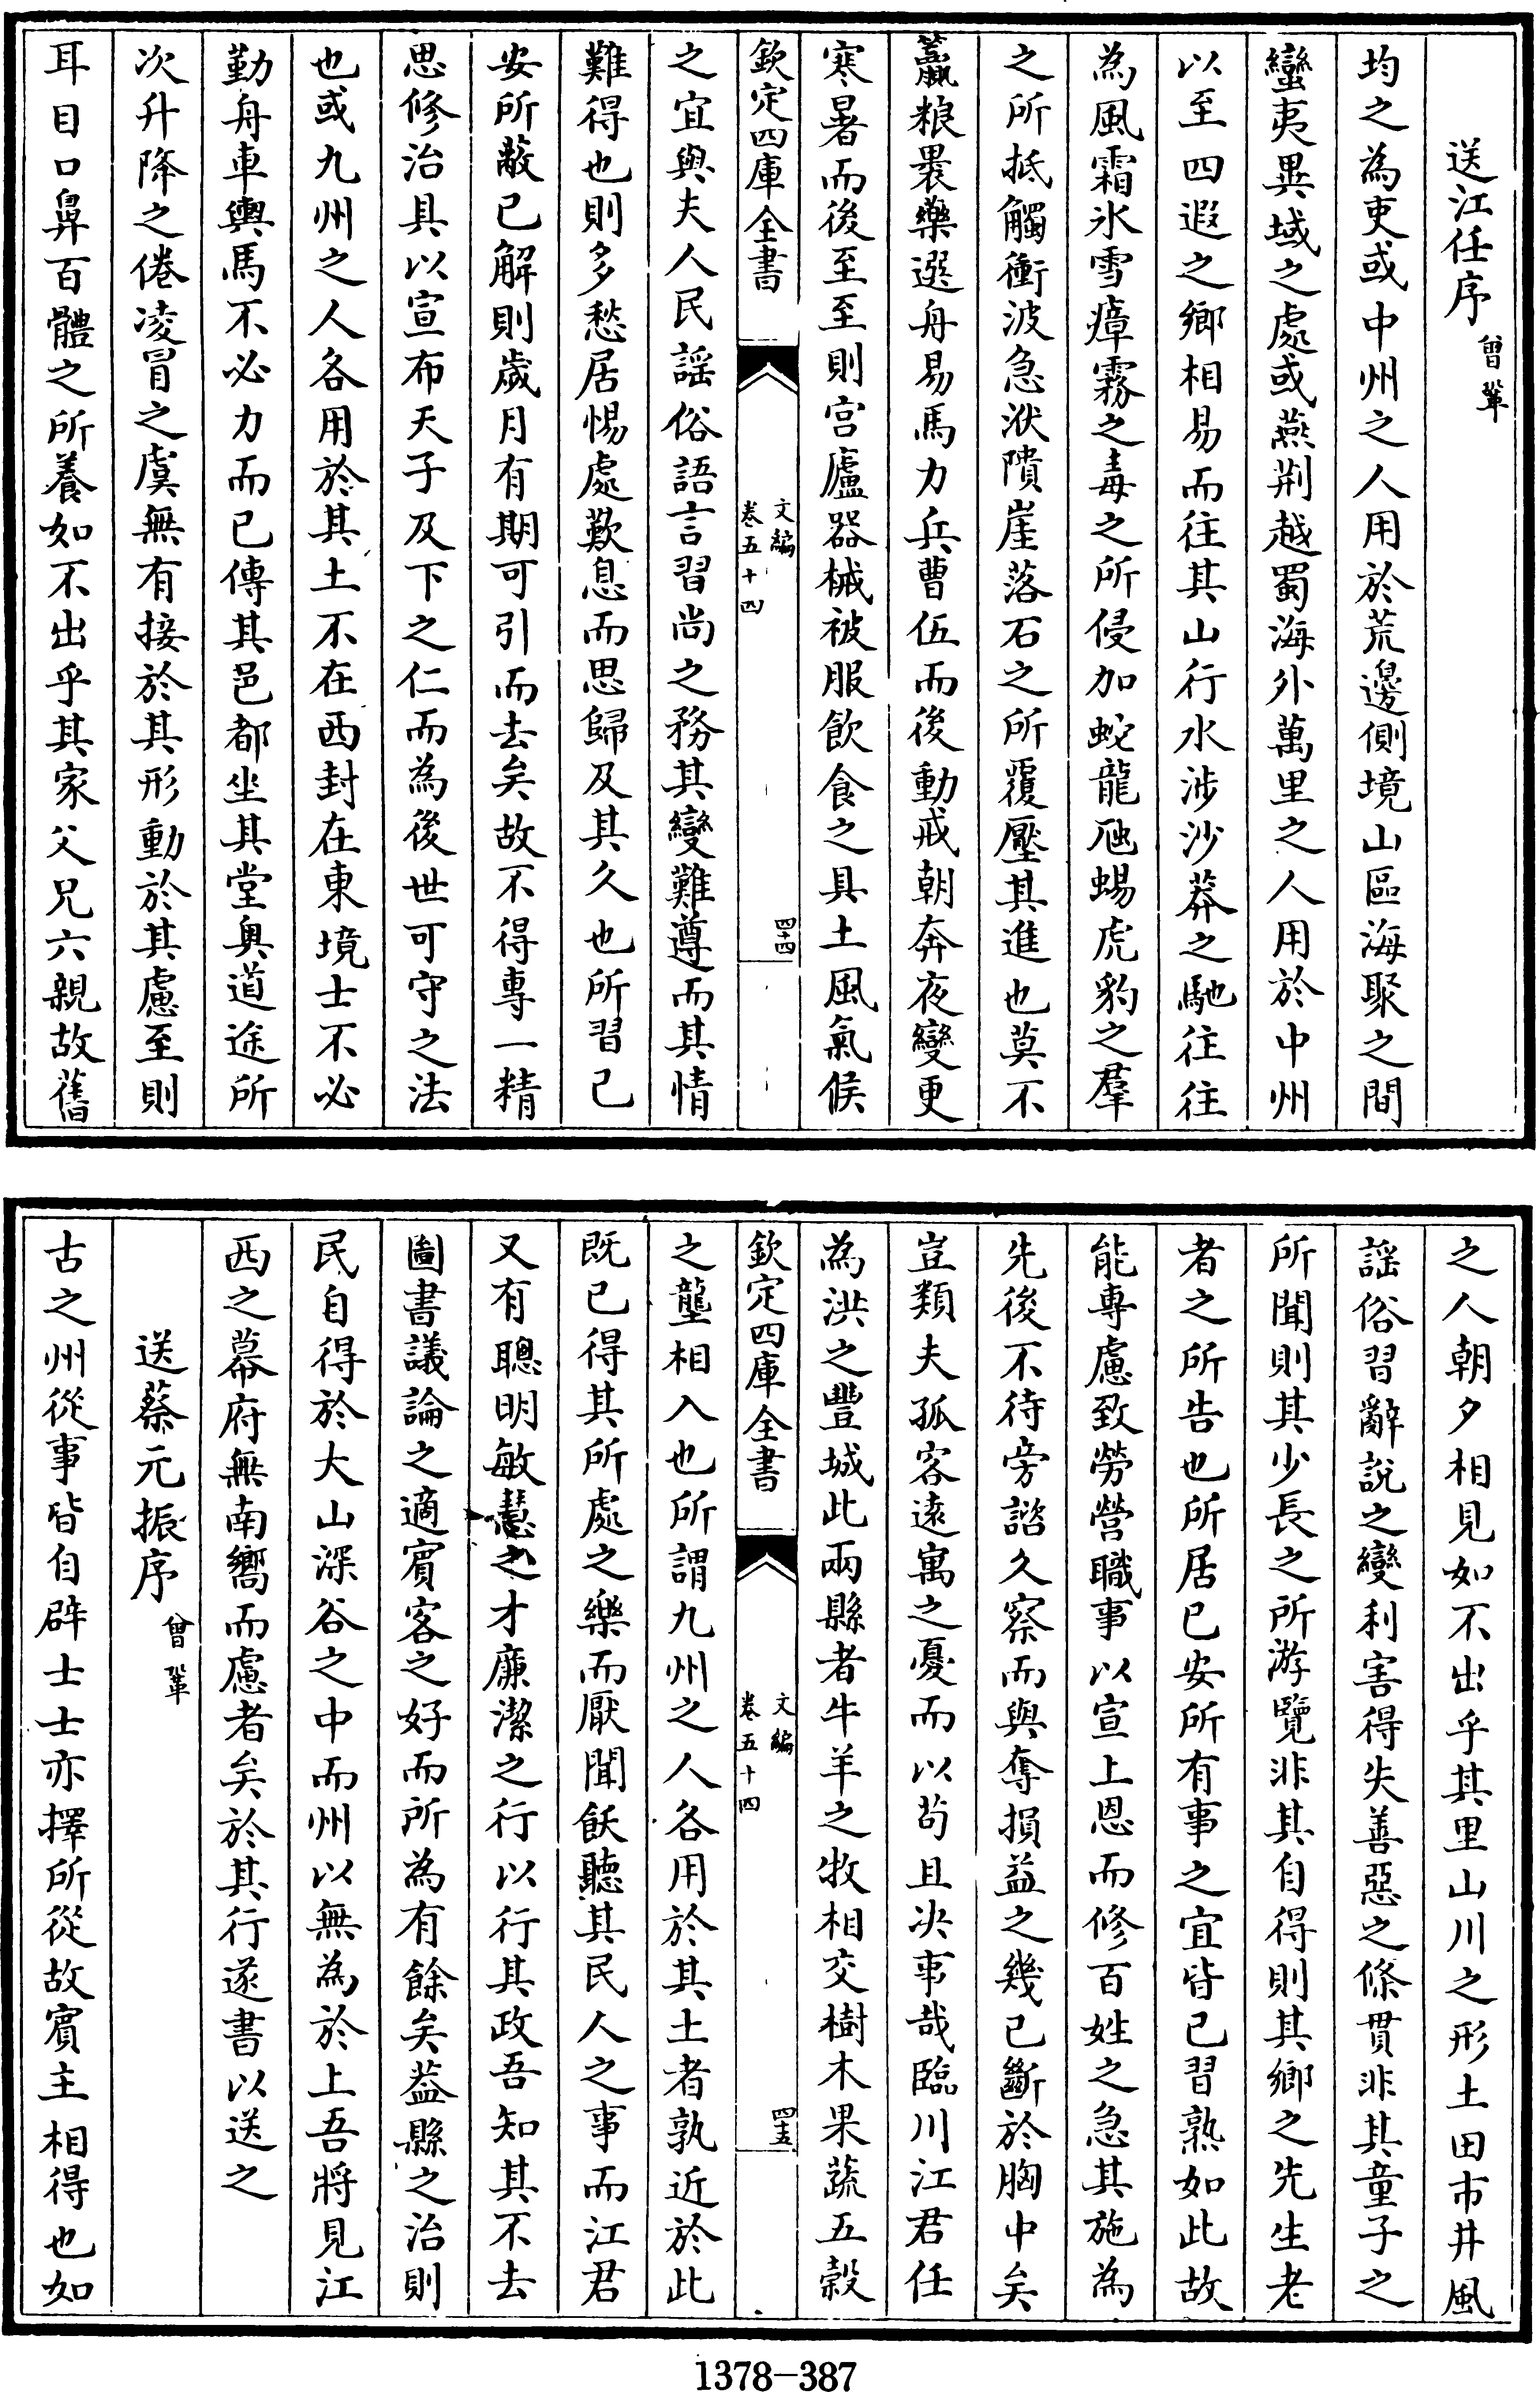 送江任序 曾鞏
均之為吏或中州之人用於荒邊側境山區海聚之間
蠻夷異域之處或燕荆越蜀海外萬里之人用於中州
以至四遐之鄉相易而往其山行水涉沙莽之馳往往
為風霜氷雪瘴霧之毒之所侵加蛇龍虺蜴虎豹之羣
之所抵觸衝波急洑隤崖落石之所覆壓其進也莫不
籯粮褁藥選舟易馬力兵曹伍而後動戒朝奔夜變更
寒暑而後至至則宫廬器械被服飲食之具土風氣候
欽定四庫全書
文編
卷五十四
四十四
之宜與夫人民謡俗語言習尚之務其變難遵而其情
難得也則多愁居惕處歎息而思歸及其久也所習已
安所蔽已解則歲月有期可引而去矣故不得專一精
思修治具以宣布天子及下之仁而為後世可守之法
也或九州之人各用於其土不在西封在東境士不必
勤舟車輿馬不必力而已傳其邑都坐其堂奥道途所
次升降之倦凌冒之虞無有接於其形動於其慮至則
耳目口鼻百體之所養如不出乎其家父兄六親故舊
之人朝夕相見如不出乎其里山川之形土田市井風
謡俗習辭説之變利害得失善惡之條貫非其童子之
所聞則其少長之所游覽非其自得則其鄉之先生老
者之所告也所居已安所有事之宜皆已習熟如此故
能專慮致勞營職事以宣上恩而修百姓之急其施為
先後不待旁諮久察而與奪損益之幾已斷於胸中矣
豈類夫孤客逺寓之憂而以苟且决事哉臨川江君任
為洪之豐城此兩縣者牛羊之牧相交樹木果蔬五榖
欽定四庫全書
文編
卷五十四
四十五
之壟相入也所謂九州之人各用於其土者孰近於此
既已得其所處之樂而厭聞飫聽其民人之事而江君
又有聰明敏慧之才廉潔之行以行其政吾知其不去
圖書議論之適賓客之好而所為有餘矣葢縣之治則
民自得於大山深谷之中而州以無為於上吾將見江
西之幕府無南嚮而慮者矣於其行遂書以送之
送蔡元振序 曾鞏
古之州從事皆自辟士士亦擇所從故賓主相得也如
1378-387